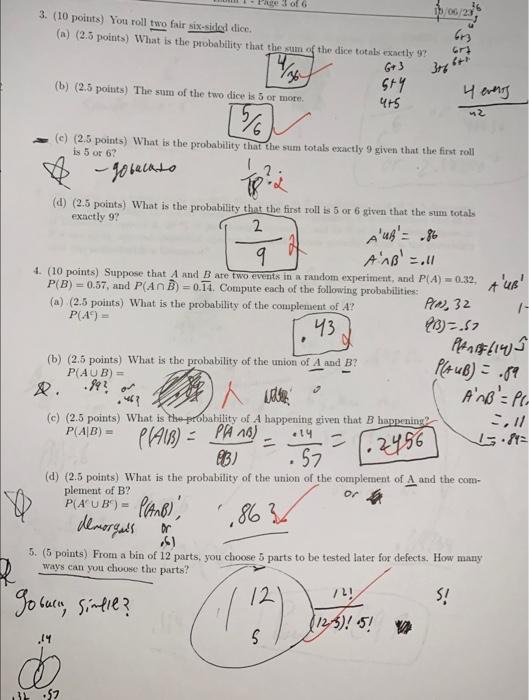 Page 3 of 6
10/06/23
3. (10 points) You roll two fair six-sided dice.
(a) (2.5 points) What is the probability that the sum of the dice totals exactly 9?
4/36
6+3
5+4
4+5
3+6
4 events
(b) (2.5 points) The sum of the two dice is 5 or more.
5/6
(c) (2.5 points) What is the probability that the sum totals exactly 9 given that the first roll
is 5 or 6?
- go back to
1/18 ?
(d) (2.5 points) What is the probability that the first roll is 5 or 6 given that the sum totals
exactly 9?
2/9
A'∪B' = .86
A'∩B' = .11
4. (10 points) Suppose that A and B are two events in a random experiment, and P(A) = 0.32,
P(B) = 0.57, and P(A ∩ B) = 0.14. Compute each of the following probabilities:
A'∪B'
(a) (2.5 points) What is the probability of the complement of A?
P(Aᶜ) =
.43
P(A) .32
P(B) = .57
(b) (2.5 points) What is the probability of the union of A and B?
P(A ∪ B) =
.89? or
P(A∪B) = .89
A'∩B' = P(
= .11
1 - .89 =
(c) (2.5 points) What is the probability of A happening given that B happening?
P(A|B) = P(A|B) = P(A∩B)/P(B) = .14/.57 = .2456
(d) (2.5 points) What is the probability of the union of the complement of A and the com-
plement of B?
P(Aᶜ ∪ Bᶜ) = P(A∩B)'
demorgans or
.86?
or
5. (5 points) From a bin of 12 parts, you choose 5 parts to be tested later for defects. How many
ways can you choose the parts?
go back, simple?
(12 5)
12!/(12-5)! 5!
5!
.14
.32 .57